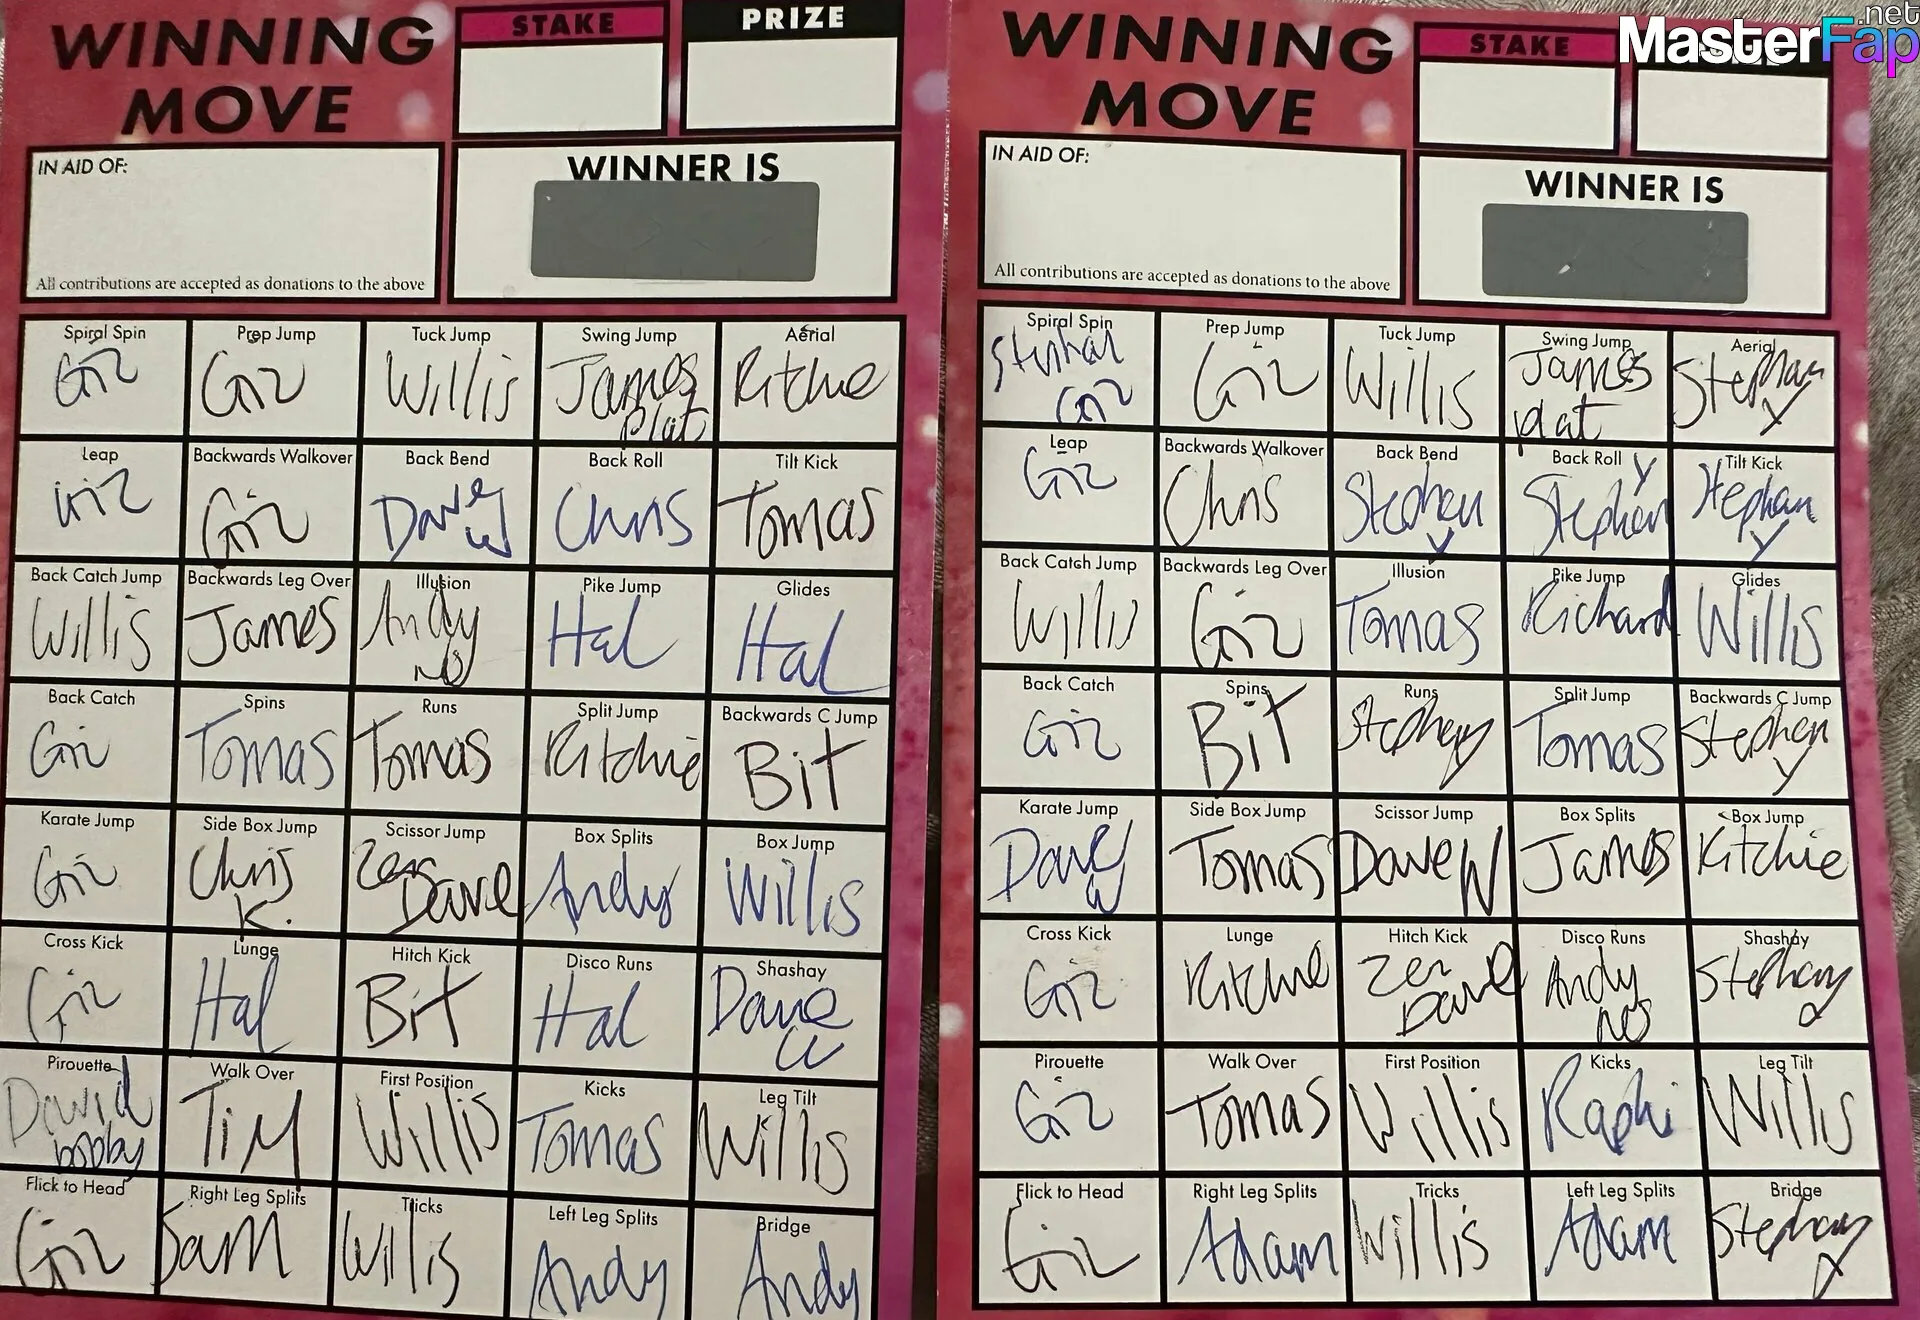 WINNING
MOVE
STAKE
PRIZE
IN AID OF:
All contributions are accepted as donations to the above
WINNER IS
Spiral Spin Prep Jump Tuck Jump Swing Jump Aerial
Giz Giz Willis James Ritchie
Plat
Leap Backwards Walkover Back Bend Back Roll Tilt Kick
Giz Giz Dave Chris Tomas
W
Back Catch Jump Backwards Leg Over Illusion Pike Jump Glides
Willis James Andy Hal Hal
NS
Back Catch Spins Runs Split Jump Backwards C Jump
Giz Tomas Tomas Ritchie Bit
Karate Jump Side Box Jump Scissor Jump Box Splits Box Jump
Giz Chris Zen Andy Willis
K. Dave
Cross Kick Lunge Hitch Kick Disco Runs Shashay
Giz Hal Bit Hal Dave
W
Pirouette Walk Over First Position Kicks Leg Tilt
David Tim Willis Tomas Willis
bobby
Flick to Head Right Leg Splits Tricks Left Leg Splits Bridge
Giz Sam Willis Andy Andy
WINNING
MOVE
STAKE
MasterFap
.net
IN AID OF:
All contributions are accepted as donations to the above
WINNER IS
Spiral Spin Prep Jump Tuck Jump Swing Jump Aerial
Giz Willis James Stephan
Giz plat Y
Leap Backwards Walkover Back Bend Back Roll Tilt Kick
Giz Chris Stephen Stephen Stephan
Y Y Y
Back Catch Jump Backwards Leg Over Illusion Pike Jump Glides
Willis Giz Tomas Richard Willis
Back Catch Spins Runs Split Jump Backwards C Jump
Giz Bit Stephen Tomas Stephen
Y Y
Karate Jump Side Box Jump Scissor Jump Box Splits Box Jump
Dave Tomas Dave W James Ritchie
W
Cross Kick Lunge Hitch Kick Disco Runs Shashay
Giz Ritchie Zen Andy Stephan
Dave NS Y
Pirouette Walk Over First Position Kicks Leg Tilt
Giz Tomas Willis Raphi Willis
Flick to Head Right Leg Splits Tricks Left Leg Splits Bridge
Giz Adam Willis Adam Stephan
Y